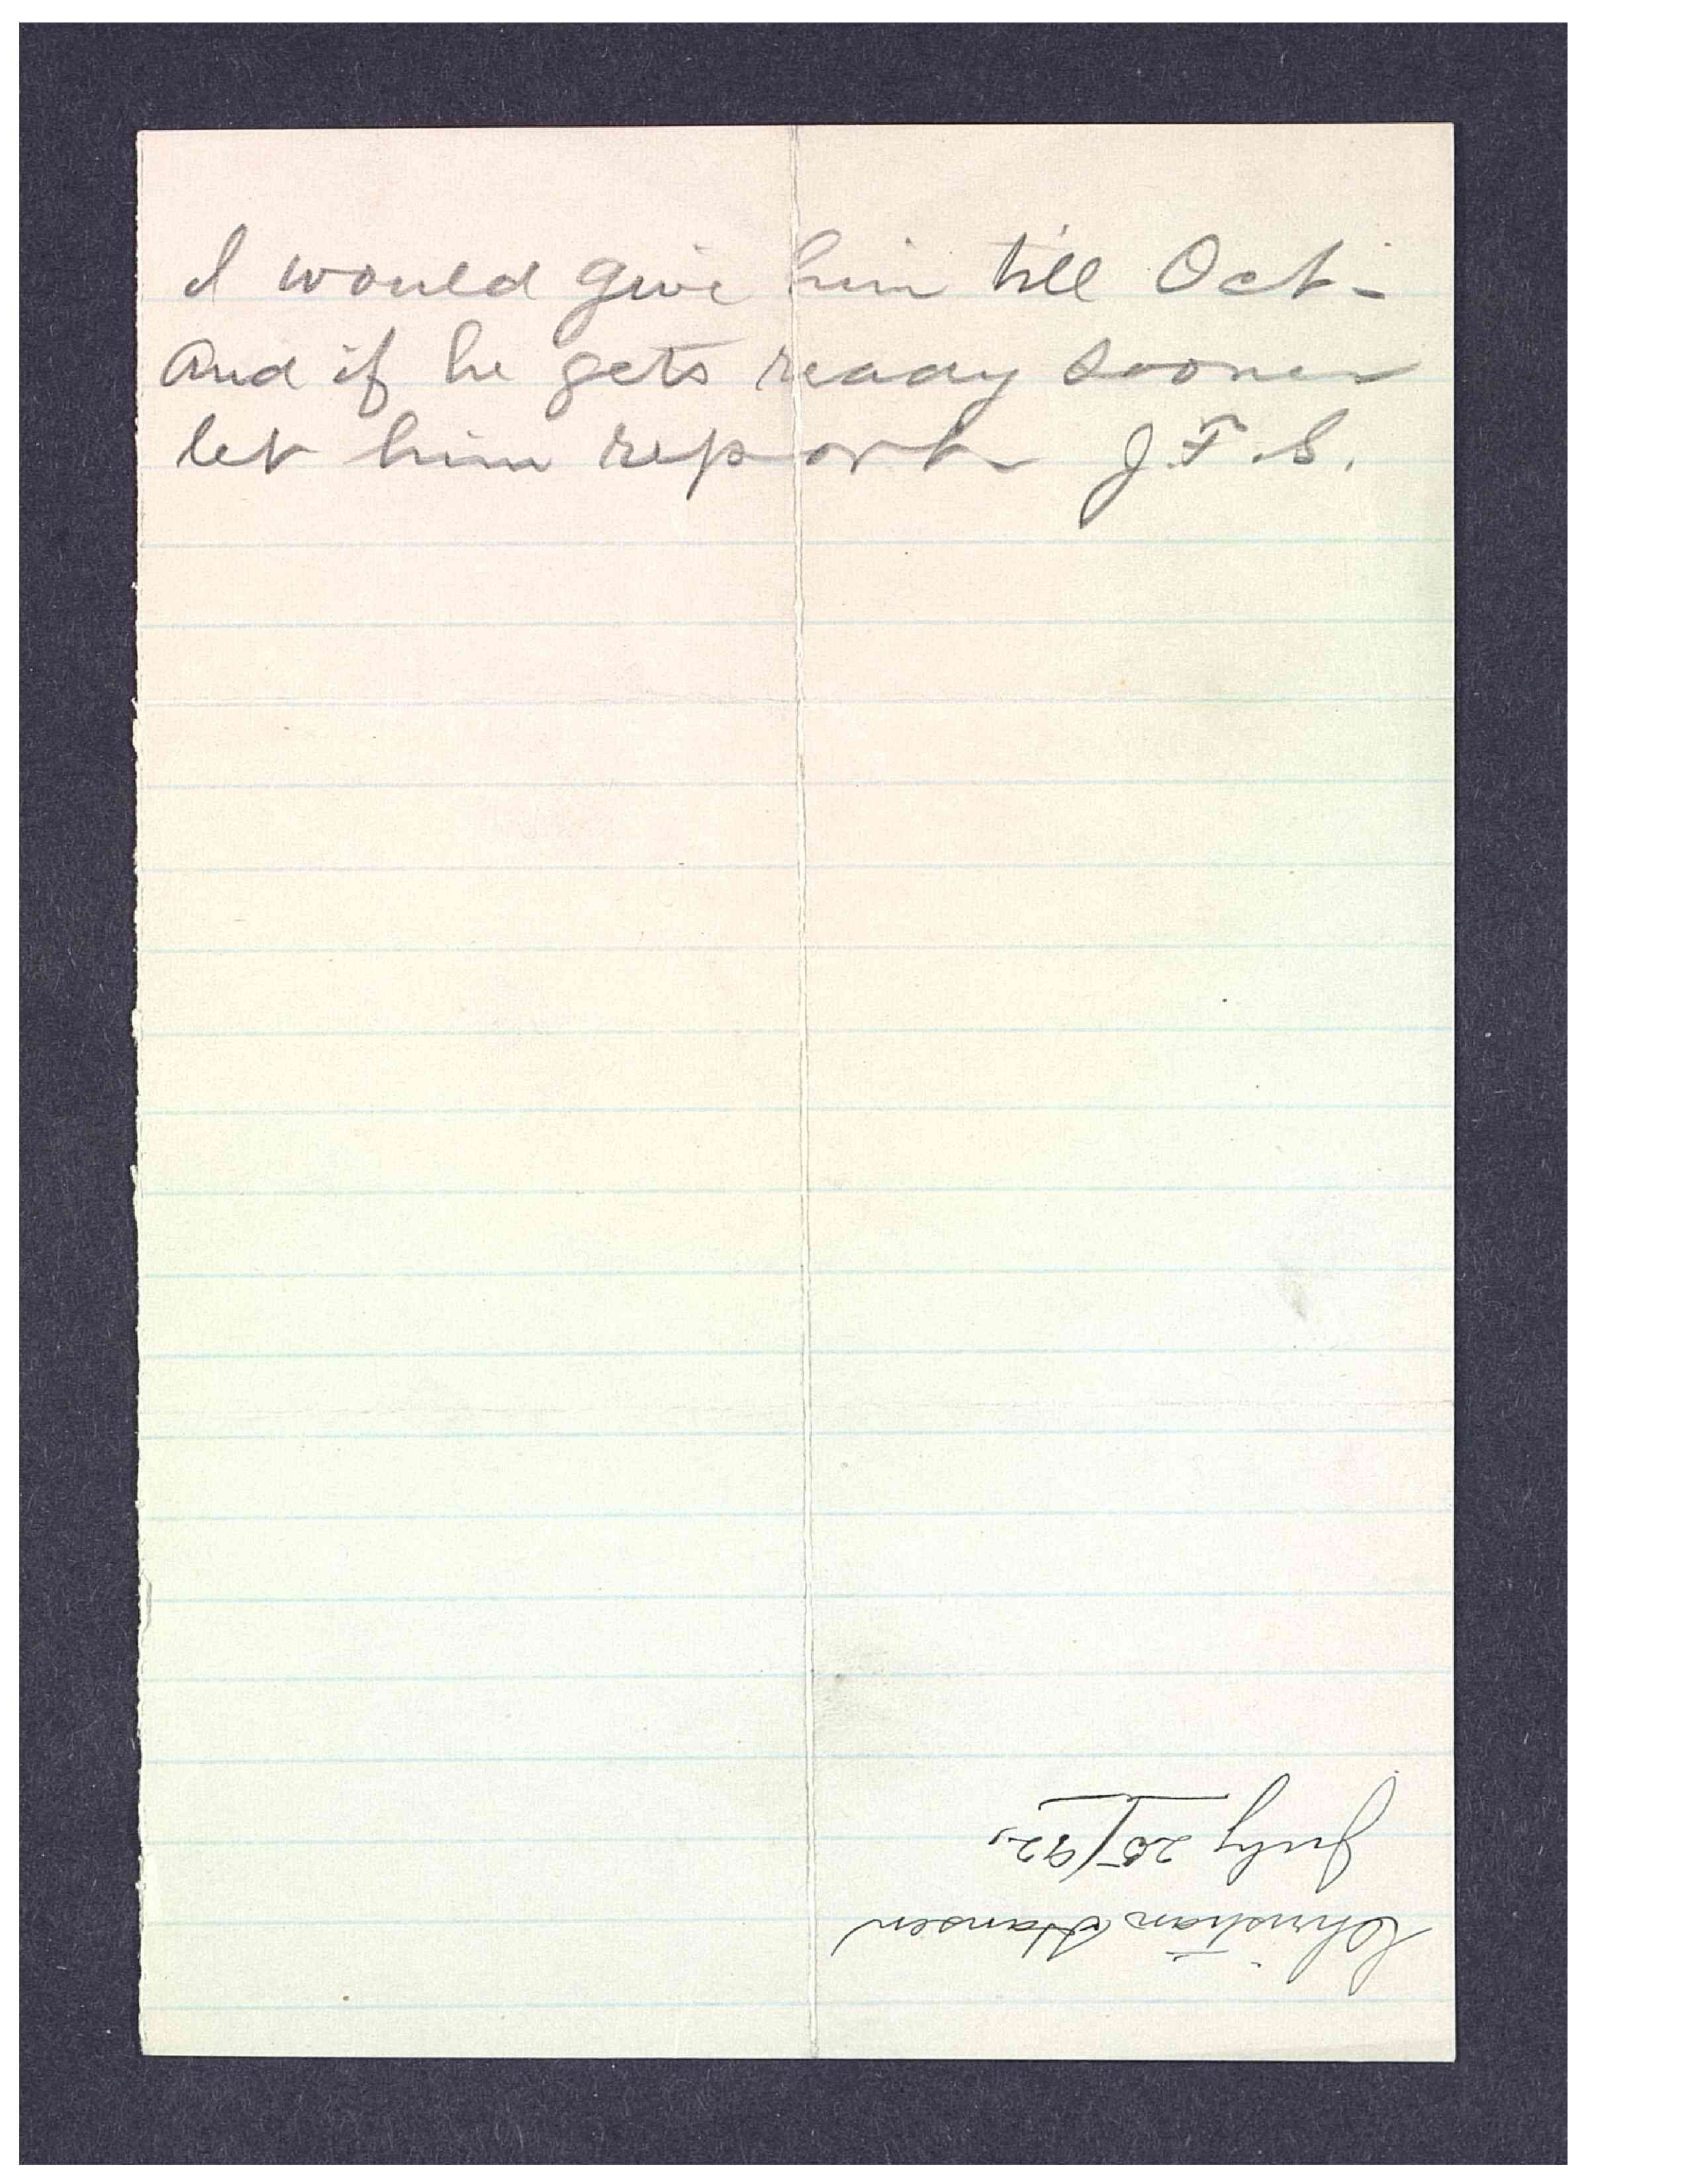 I would give him till Oct-
And if he gets ready sooner
let him report J.F.S.
Christian Hansen
July 25/92.